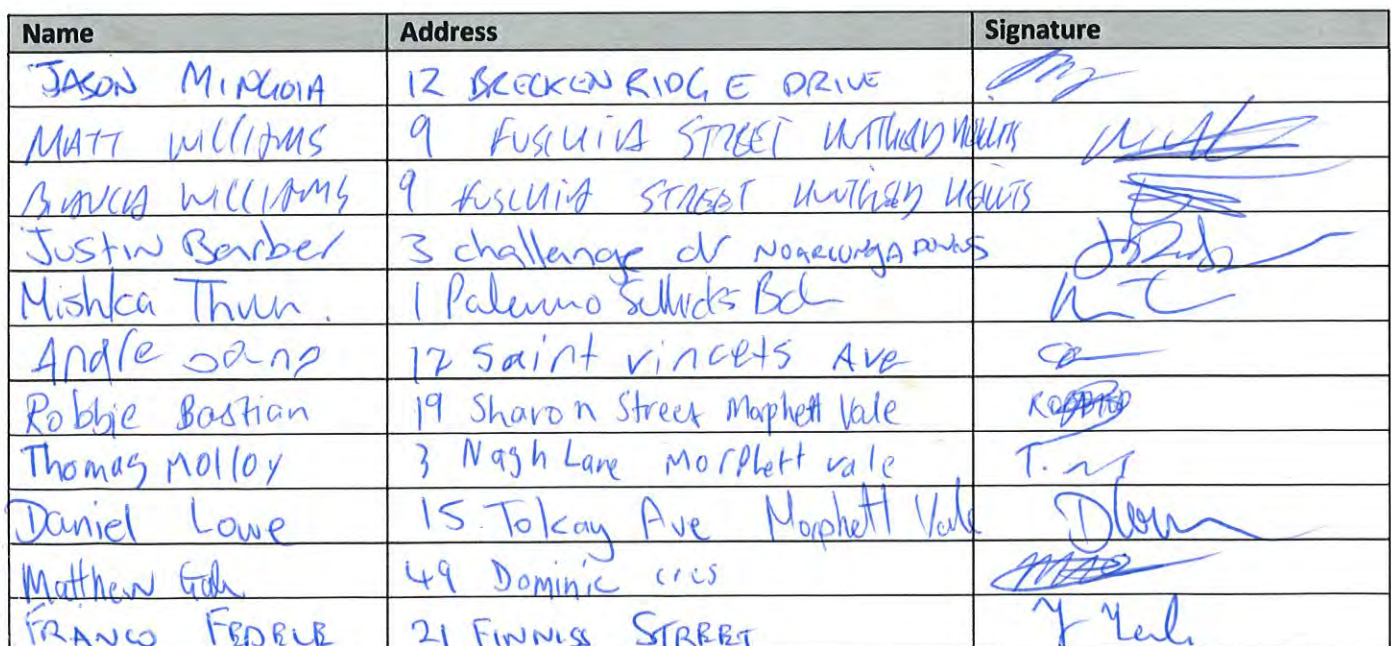 Name Address Signature
JASON MINGOIA 12 BRECKENRIDGE DRIVE
MATT WILLIAMS 9 FUSCHIA STREET HUNTFIELD HEIGHTS
BIANCA WILLIAMS 9 FUSCHIA STREET HUNTFIELD HEIGHTS
Justin Barber 3 challenge dr NOARLUNGA DOWNS
Mishka Thurn. 1 Palermo Sellicks Bch
Andre 12 Saint vincets Ave
Robbie Bastian 19 Sharon Street Maphett Vale
Thomas Molloy 3 Nash Lane Morphett vale
Daniel Lowe 15 Tokay Ave Morphett Vale
Matthew 49 Dominic cres
FRANCO FEDELE 21 FINNISS STREET